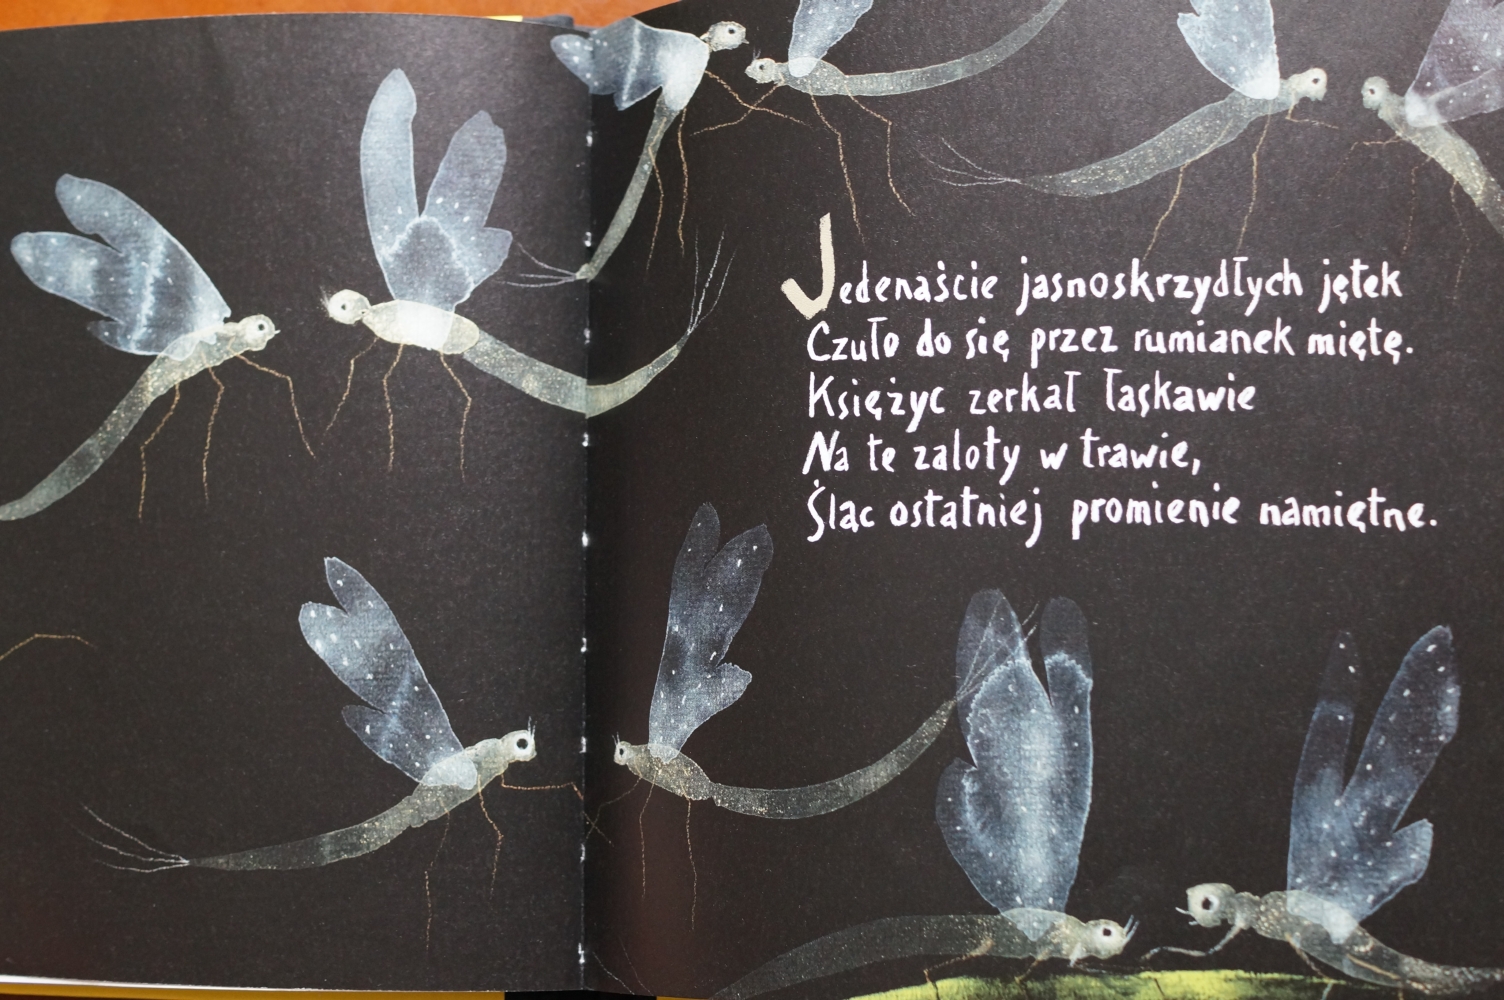 Jedenaście jasnoskrzydłych jętek
Czuło do się przez rumianek miętę.
Księżyc zerkał łaskawie
Na te zaloty w trawie,
Śląc ostatniej promienie namiętne.